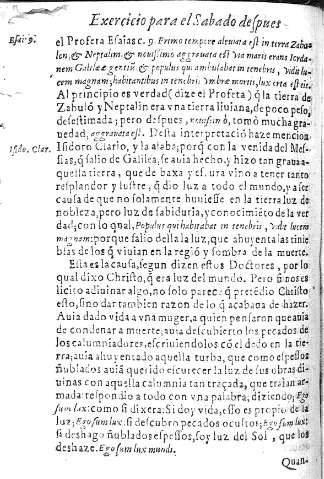 Exercicio para el Sabado despues
Esai. 9. el Profeta Esaias c. 9 Primo tempore aleuata est in terra Zabu-
lon, & Neptalim, & nouissimo aggrauata est via maris trans Iorda-
nem Galilææ gentiũ, & populus qui ambulabat in tenebris, vidit lu-
cem magnam, habitantibus in tenebris, vmbræ mortis, lux orta est eis.
Al principio es verdad (dize el Profeta) q̃ la tierra de
Zabuló y Neptalin era vna tierra liuiana, de poco peso,
desestimada; pero despues, nouissimò, tomò mucha gra-
uedad, aggrauata est. Desta interpretaciõ haze mencion
Isido. Clar. Isidoro Clario, y la alaba; porq̃ con la venida del Mes-
sias, q̃ salio de Galilea, se auia hecho, y hizo tan graua a-
quella tierra, que de baxa y escura vino a tener tanto
resplandor y lustre, q̃ dio luz a todo el mundo, y a ser
causa de que no solamente huuiesse en la tierra luz de
nobleza, pero luz de sabiduria, y conocimiẽto de la ver
dad; con lo qual, Populus qui habitabat in tenebris, vidit lucem
magnam: porque salio della la luz, que ahuyenta las tinie
blas de los q̃ viuian en la regiõ y sombra de la muerte.
Esta es la causa, segun dizen estos Doctores, por lo
qual dixo Christo, q̃ era luz del mundo. Pero si nos es
licito adiuinar algo, no solo parece q̃ pretẽdio Christo
esto, sino dar tambien razon de lo q̃ acabaua de hazer.
Auia dado vida a vna muger, a quien pensaron que auia
de condenar a muerte; auia descubierto los pecados de
los calumniadores, escriuiendolos cõ el dedo en la tie-
rra; auia ahuyentado aquella turba, que como espessos
ñublados auiã querido escurecer la luz de sus obras di-
uinas con aquella calumnia tan traçada, que traían ar-
mada: respondio a todo con vna palabra, diziendo; Ego
sum lux: como si dixera: Si doy vida, esso es propio de la
luz; Ego sum lux: si descubro pecados ocultos; Ego sum lux:
si deshago ñublados espessos, soy luz del Sol, que los
deshaze. Ego sum lux mundi.
Quan-